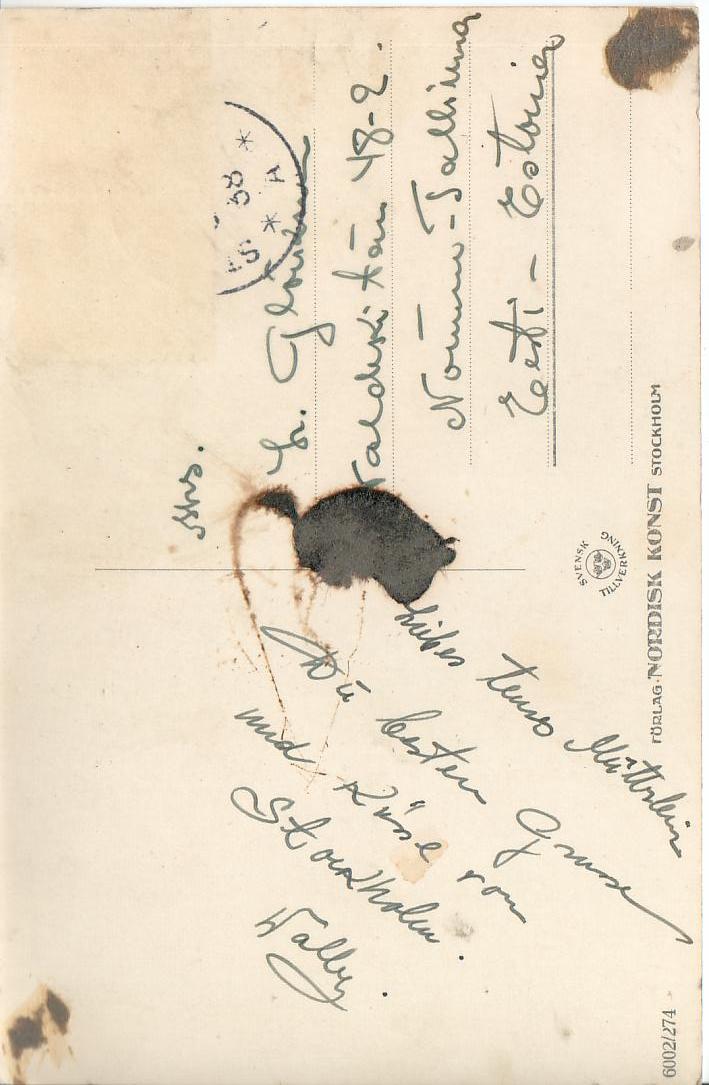 Liebes teures Mütterlein
Die besten Grüsse
und Küsse von
Stockholm.
Wally.
Mrs.
Valdeki tän 48-2.
Nõmme-Tallinna
Eesti - Estonia
38
A
SVENSK TILLVERKNING
FÖRLAG: NORDISK KONST STOCKHOLM
6002/274